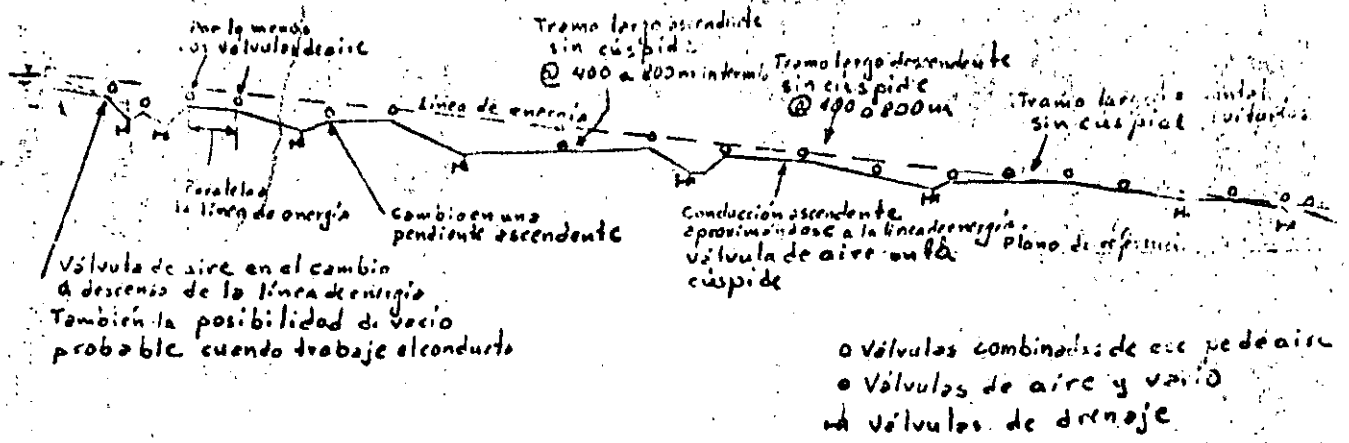 Por lo menos
dos válvulas de aire
Tramo largo ascendente
sin cúspide
@ 400 a 800 m
Tramo largo descendente
sin cúspide
@ 400 a 800 m
Tramo largo
sin cúspide
Línea de energía
Paralela a
la línea de energía
Cambio en una
pendiente ascendente
Conducción ascendente
aproximándose a la línea de energía.
válvula de aire en la
cúspide
Plano de
Válvula de aire en el cambio
a descenso de la línea de energía
También la posibilidad de vacío
probable cuando trabaje el conducto
o Válvulas combinadas de de aire
o Válvulas de aire y vacío
Válvulas de drenaje